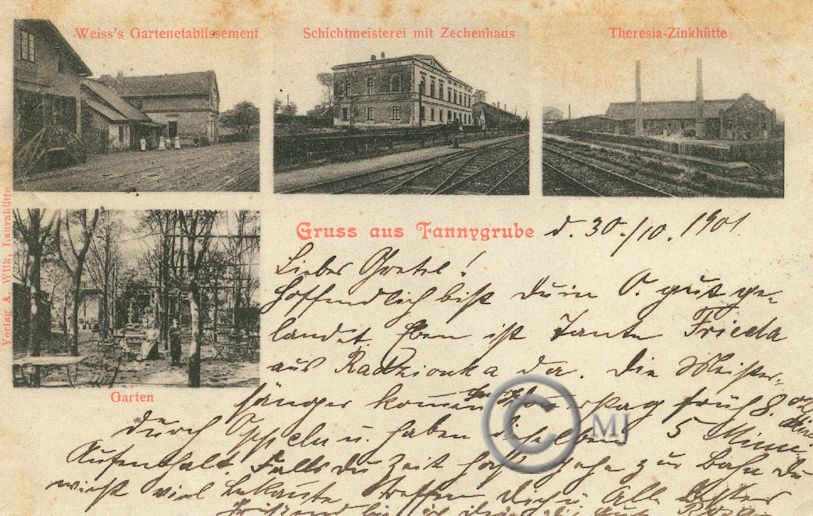 Weiss's Gartenetablissement
Schichtmeisterei mit Zechenhaus
Theresia-Zinkhütte
Verlag A. Wilk, Laurahütte
Garten
Gruss aus Fannygrube
d. 30./10. 1901
Liebe Gretel!
Hoffentlich bist du in O. gut ge-
landet. Eben ist Tante Frieda
aus Radzionka da. Die Meister-
sänger kommen früh 8
durch Oppeln u. haben 5 Minu
Aufenthalt. Falls du Zeit hast gehe zur Bahn du
wirst viel Bekannte treffen.
© MJ